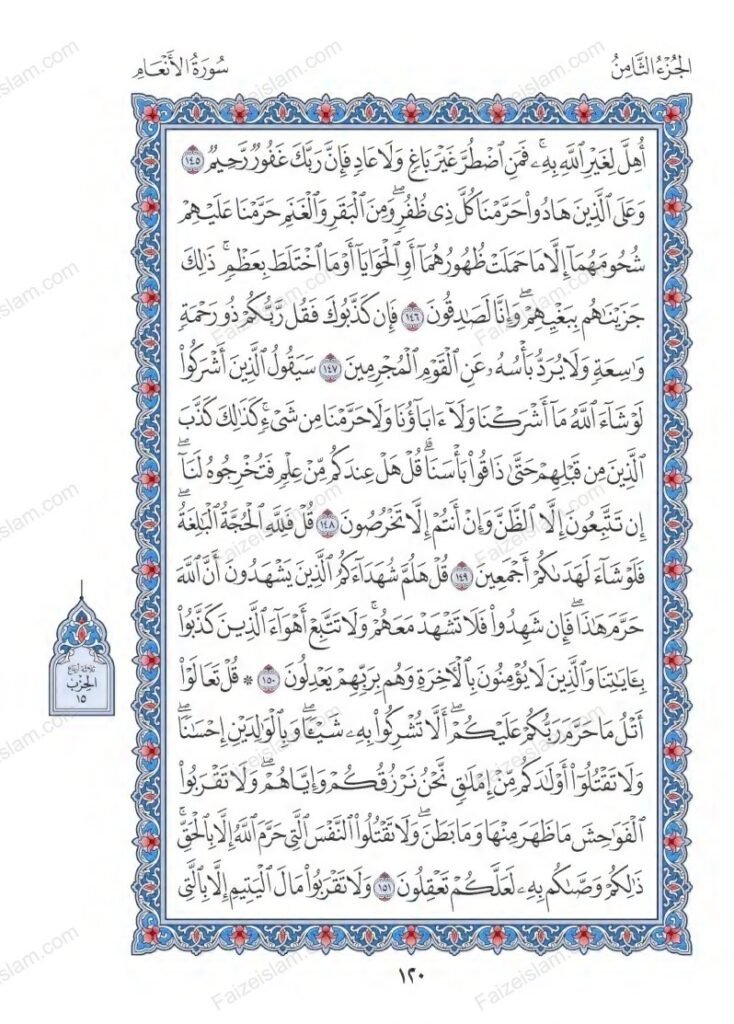 الجُزْءُ الثَّامِنُ
سُورَةُ الأَنْعَامِ
أُهِلَّ لِغَيْرِ ٱللَّهِ بِهِۦۚ فَمَنِ ٱضْطُرَّ غَيْرَ بَاغٍ وَلَا عَادٍ فَإِنَّ رَبَّكَ غَفُورٌ رَّحِيمٌ ١٤٥
وَعَلَى ٱلَّذِينَ هَادُوا۟ حَرَّمْنَا كُلَّ ذِى ظُفُرٍۖ وَمِنَ ٱلْبَقَرِ وَٱلْغَنَمِ حَرَّمْنَا عَلَيْهِمْ
شُحُومَهُمَآ إِلَّا مَا حَمَلَتْ ظُهُورُهُمَآ أَوِ ٱلْحَوَايَآ أَوْ مَا ٱخْتَلَطَ بِعَظْمٍۚ ذَٰلِكَ
جَزَيْنَٰهُم بِبَغْيِهِمْۖ وَإِنَّا لَصَٰدِقُونَ ١٤٦ فَإِن كَذَّبُوكَ فَقُل رَّبُّكُمْ ذُو رَحْمَةٍ
وَٰسِعَةٍ وَلَا يُرَدُّ بَأْسُهُۥ عَنِ ٱلْقَوْمِ ٱلْمُجْرِمِينَ ١٤٧ سَيَقُولُ ٱلَّذِينَ أَشْرَكُوا۟
لَوْ شَآءَ ٱللَّهُ مَآ أَشْرَكْنَا وَلَآ ءَابَآؤُنَا وَلَا حَرَّمْنَا مِن شَىْءٍۚ كَذَٰلِكَ كَذَّبَ
ٱلَّذِينَ مِن قَبْلِهِمْ حَتَّىٰ ذَاقُوا۟ بَأْسَنَاۗ قُلْ هَلْ عِندَكُم مِّنْ عِلْمٍ فَتُخْرِجُوهُ لَنَآۖ
إِن تَتَّبِعُونَ إِلَّا ٱلظَّنَّ وَإِنْ أَنتُمْ إِلَّا تَخْرُصُونَ ١٤٨ قُلْ فَلِلَّهِ ٱلْحُجَّةُ ٱلْبَٰلِغَةُۖ
فَلَوْ شَآءَ لَهَدَىٰكُمْ أَجْمَعِينَ ١٤٩ قُلْ هَلُمَّ شُهَدَآءَكُمُ ٱلَّذِينَ يَشْهَدُونَ أَنَّ ٱللَّهَ
حَرَّمَ هَٰذَاۖ فَإِن شَهِدُوا۟ فَلَا تَشْهَدْ مَعَهُمْۚ وَلَا تَتَّبِعْ أَهْوَآءَ ٱلَّذِينَ كَذَّبُوا۟
بِـَٔايَٰتِنَا وَٱلَّذِينَ لَا يُؤْمِنُونَ بِٱلْءَاخِرَةِ وَهُم بِرَبِّهِمْ يَعْدِلُونَ ١٥٠ * قُلْ تَعَالَوْا۟
أَتْلُ مَا حَرَّمَ رَبُّكُمْ عَلَيْكُمْۖ أَلَّا تُشْرِكُوا۟ بِهِۦ شَيْـًٔاۖ وَبِٱلْوَٰلِدَيْنِ إِحْسَٰنًاۖ
وَلَا تَقْتُلُوٓا۟ أَوْلَٰدَكُم مِّنْ إِمْلَٰقٍ نَّحْنُ نَرْزُقُكُمْ وَإِيَّاهُمْۖ وَلَا تَقْرَبُوا۟
ٱلْفَوَٰحِشَ مَا ظَهَرَ مِنْهَا وَمَا بَطَنَۖ وَلَا تَقْتُلُوا۟ ٱلنَّفْسَ ٱلَّتِى حَرَّمَ ٱللَّهُ إِلَّا بِٱلْحَقِّۚ
ذَٰلِكُمْ وَصَّىٰكُم بِهِۦ لَعَلَّكُمْ تَعْقِلُونَ ١٥١ وَلَا تَقْرَبُوا۟ مَالَ ٱلْيَتِيمِ إِلَّا بِٱلَّتِى
ثلاثة أرباع
الحزب
١٥
١٢٠
Faizeislam.com